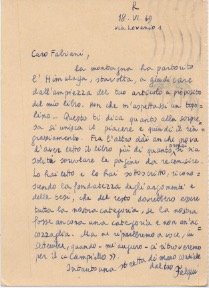 R
18. VI 69
via Lovanio 1
Caro Fabiani,
La montagna ha partorito
l'Himalaya, stavolta, a giudicare
dall'ampiezza del tuo articolo a proposito
del mio libro. Non che m'aspettassi un topo-
lino. Questo ti dica quanto alla sorpre-
sa si unisca il piacere e quindi il rin-
graziamento. Fra l'altro tu anche
l'aver letto il libro più di quanto si sia
soliti scrutare le pagine da recensire.
Lo hai letto e lo hai sottoscritto, ricono-
scendo la fondatezza degli argomenti e
delle tesi, che del resto dovrebbero essere
tutta la nostra categoria, se la nostra
fosse ancora una categoria e non un'ac-
cozzaglia. Ma ne riparleremo a voce, in
settembre, quando m'auguro ci ritroveremo
per il «Campiello»
Intanto una stretta di mano cordiale
dal tuo